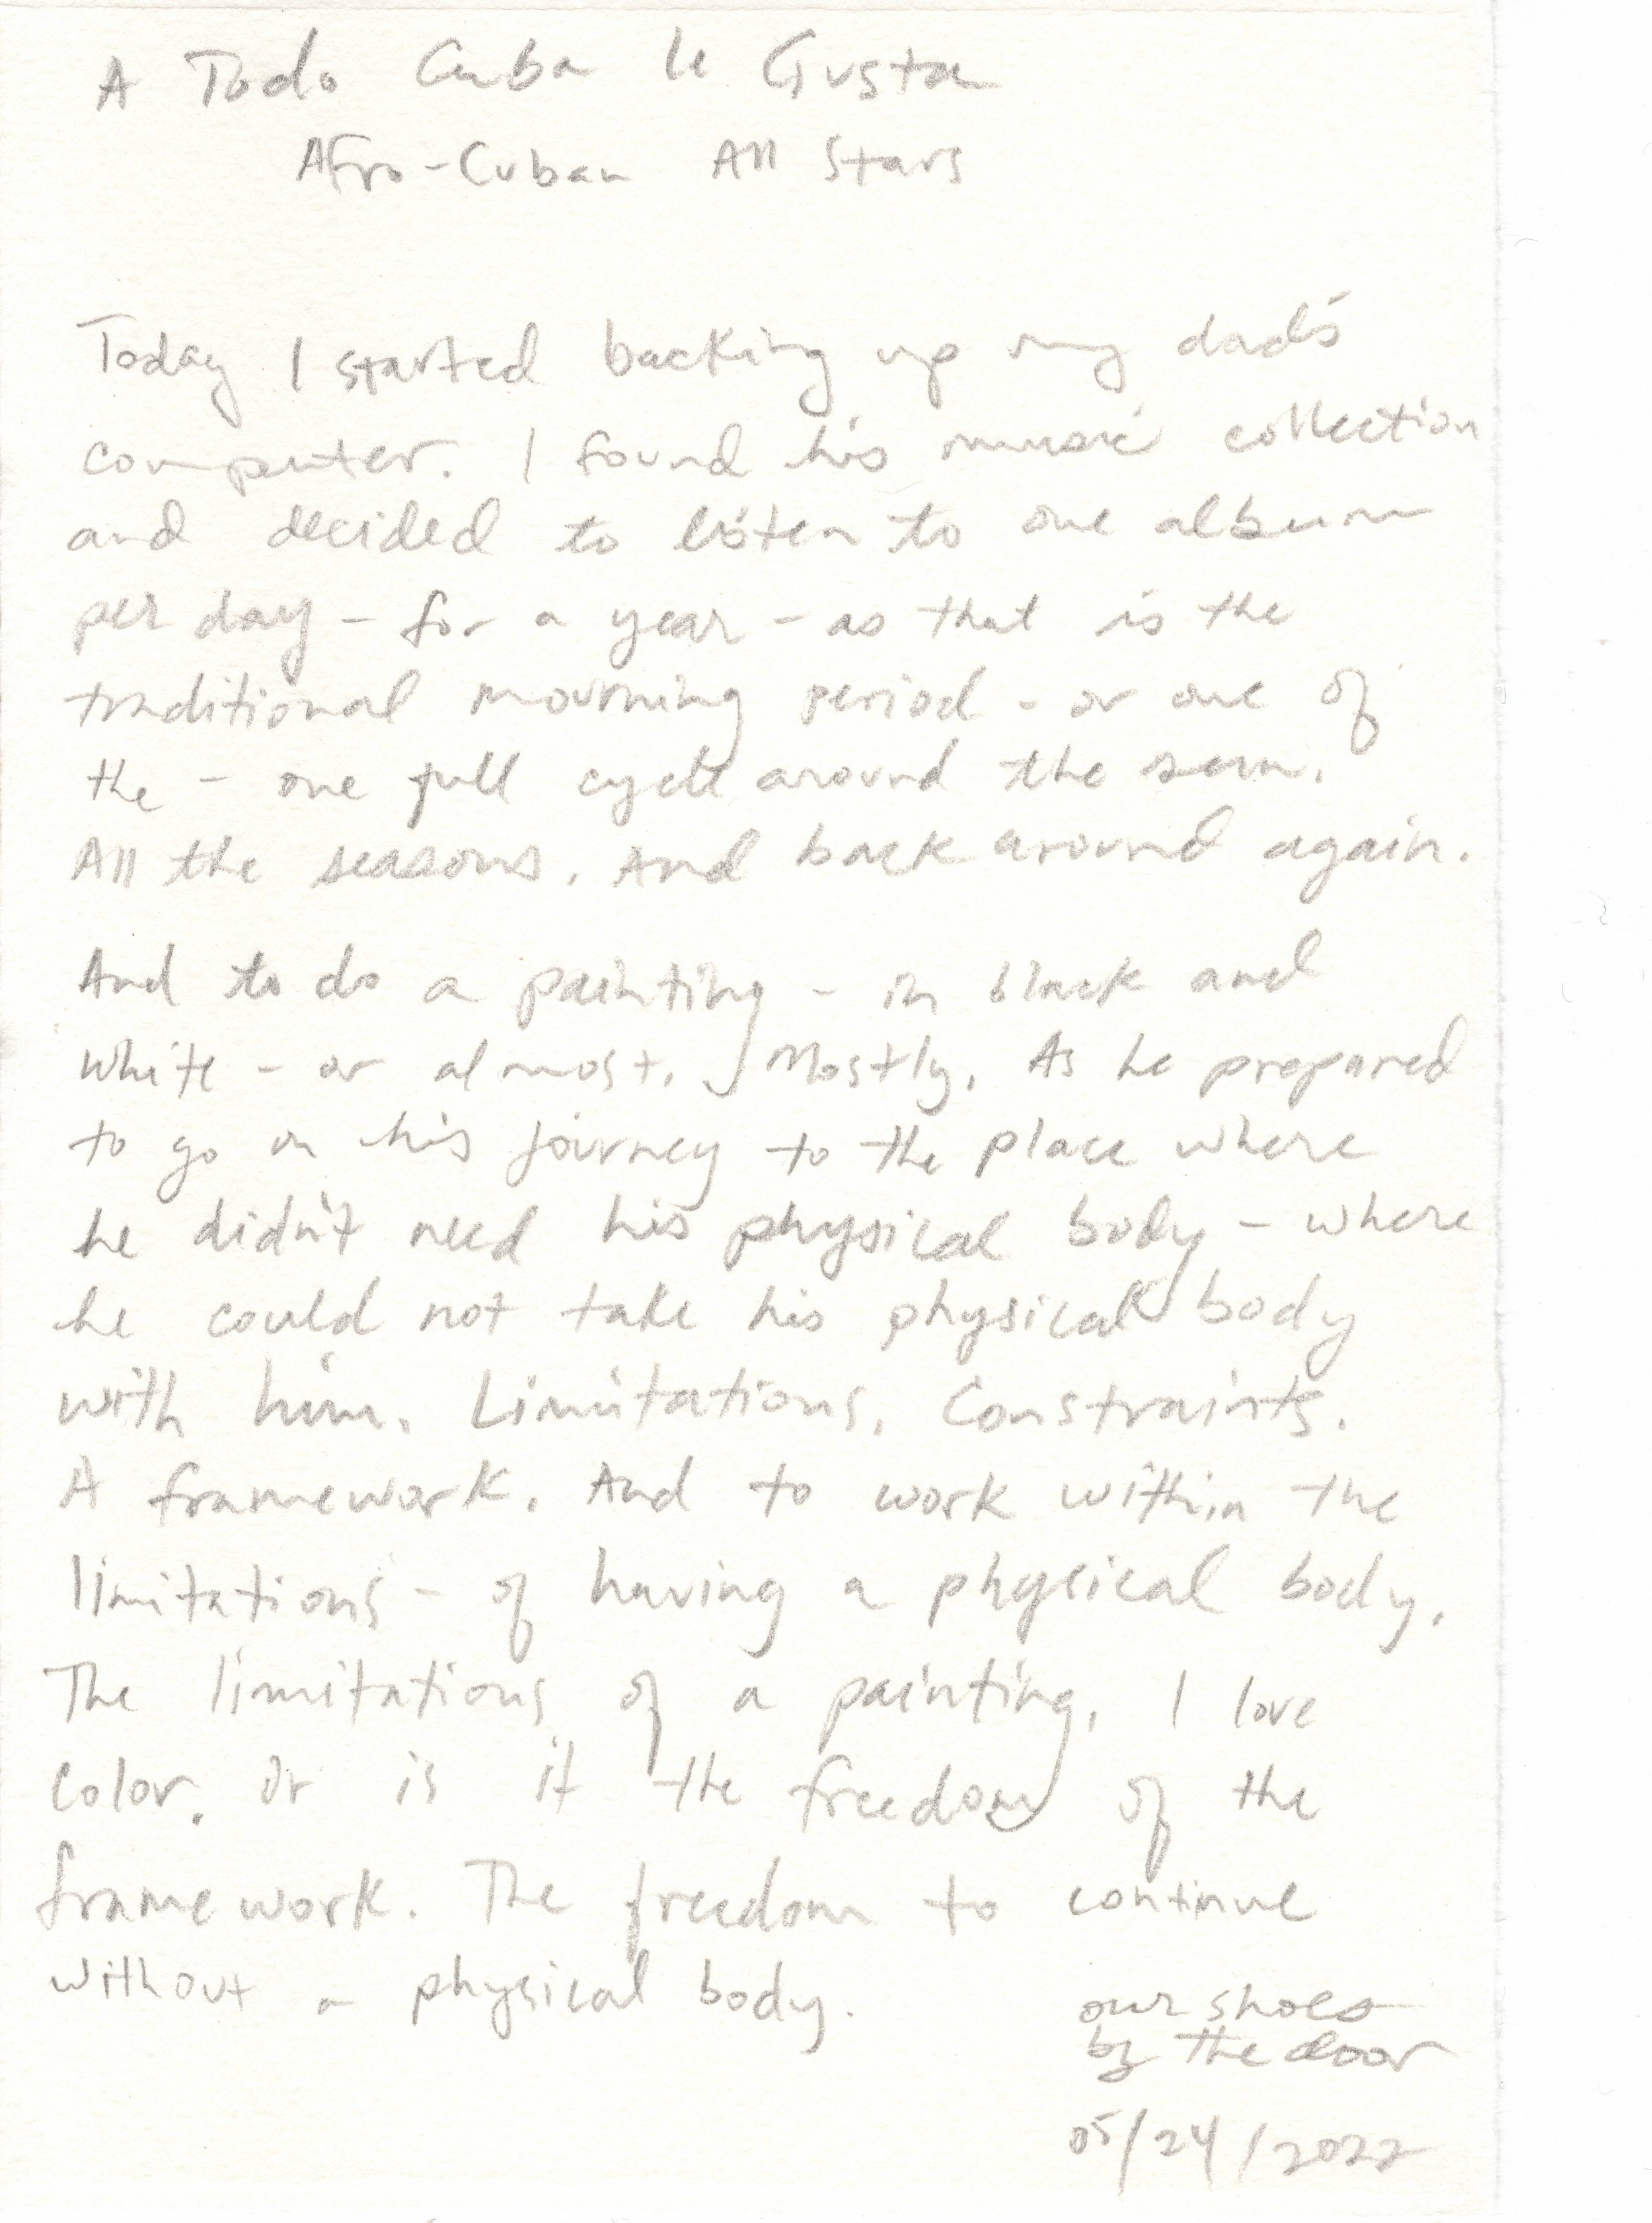 A Todo Cuba le Gusta
Afro-Cuban All Stars
Today I started backing up my dad's
computer. I found his music collection
and decided to listen to one album
per day - for a year - as that is the
traditional mourning period - or one of
the - one full cycle around the sun.
All the seasons. And back around again.
And to do a painting - in black and
white - or almost. Mostly. As he prepared
to go on his journey to the place where
he didn't need his physical body - where
he could not take his physical body
with him. Limitations. Constraints.
A framework. And to work within the
limitations - of having a physical body.
The limitations of a painting. I love
color. Or is it the freedom of the
framework. The freedom to continue
without a physical body.
our shoes
by the door
05/24/2022